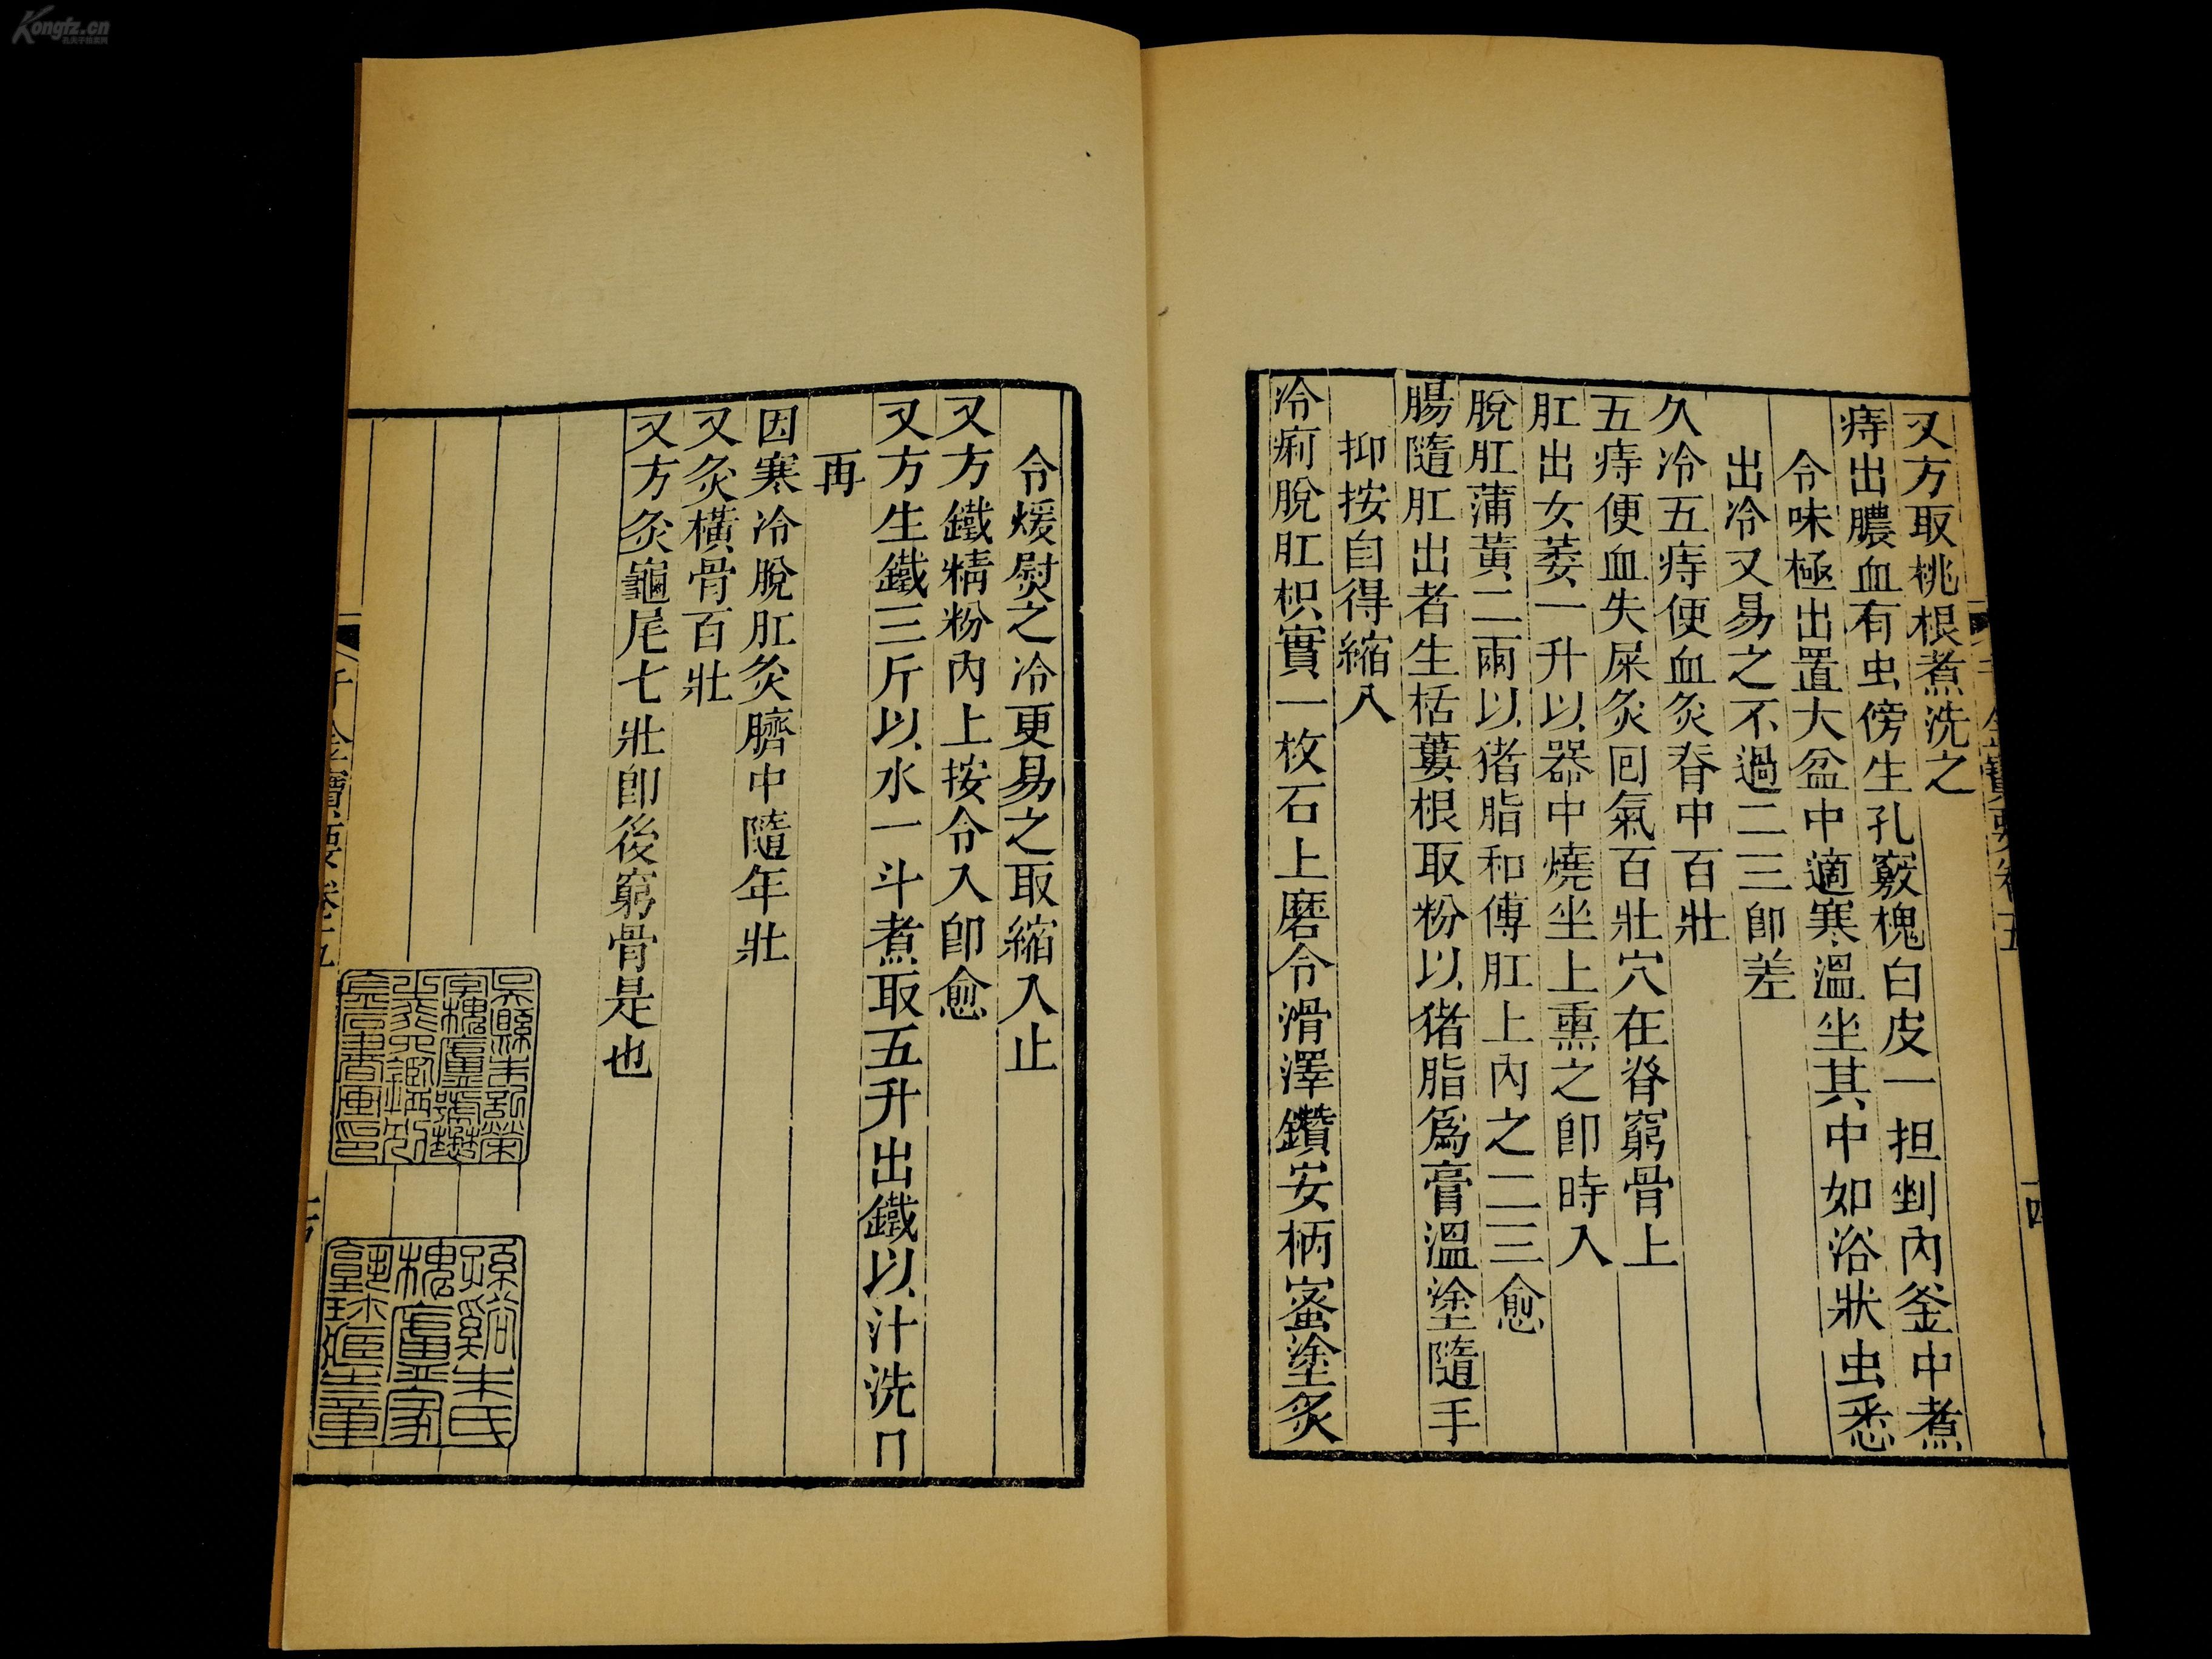 又方取桃根煮洗之
痔出膿血有虫傍生孔竅槐白皮一担剉內釜中煮
令味極出置大盆中適寒溫坐其中如浴狀虫悉
出冷又易之不過二三卽差
久冷五痔便血灸脊中百壯
五痔便血失屎灸囘氣百壯穴在脊窮骨上
肛出女萎一升以器中燒坐上熏之卽時入
脫肛蒲黃二兩以猪脂和傅肛上內之二三愈
腸隨肛出者生栝蔞根取粉以猪脂爲膏溫塗隨手
抑按自得縮入
冷痢脫肛枳實一枚石上磨令滑澤鑽安柄蜜塗炙
令煖熨之冷更易之取縮入止
又方鐵精粉內上按令入卽愈
又方生鐵三斤以水一斗煮取五升出鐵以汁洗日
再
因寒冷脫肛灸臍中隨年壯
又灸橫骨百壯
又方灸龜尾七壯卽後窮骨是也
千金寶要卷五
Kongfz.cn